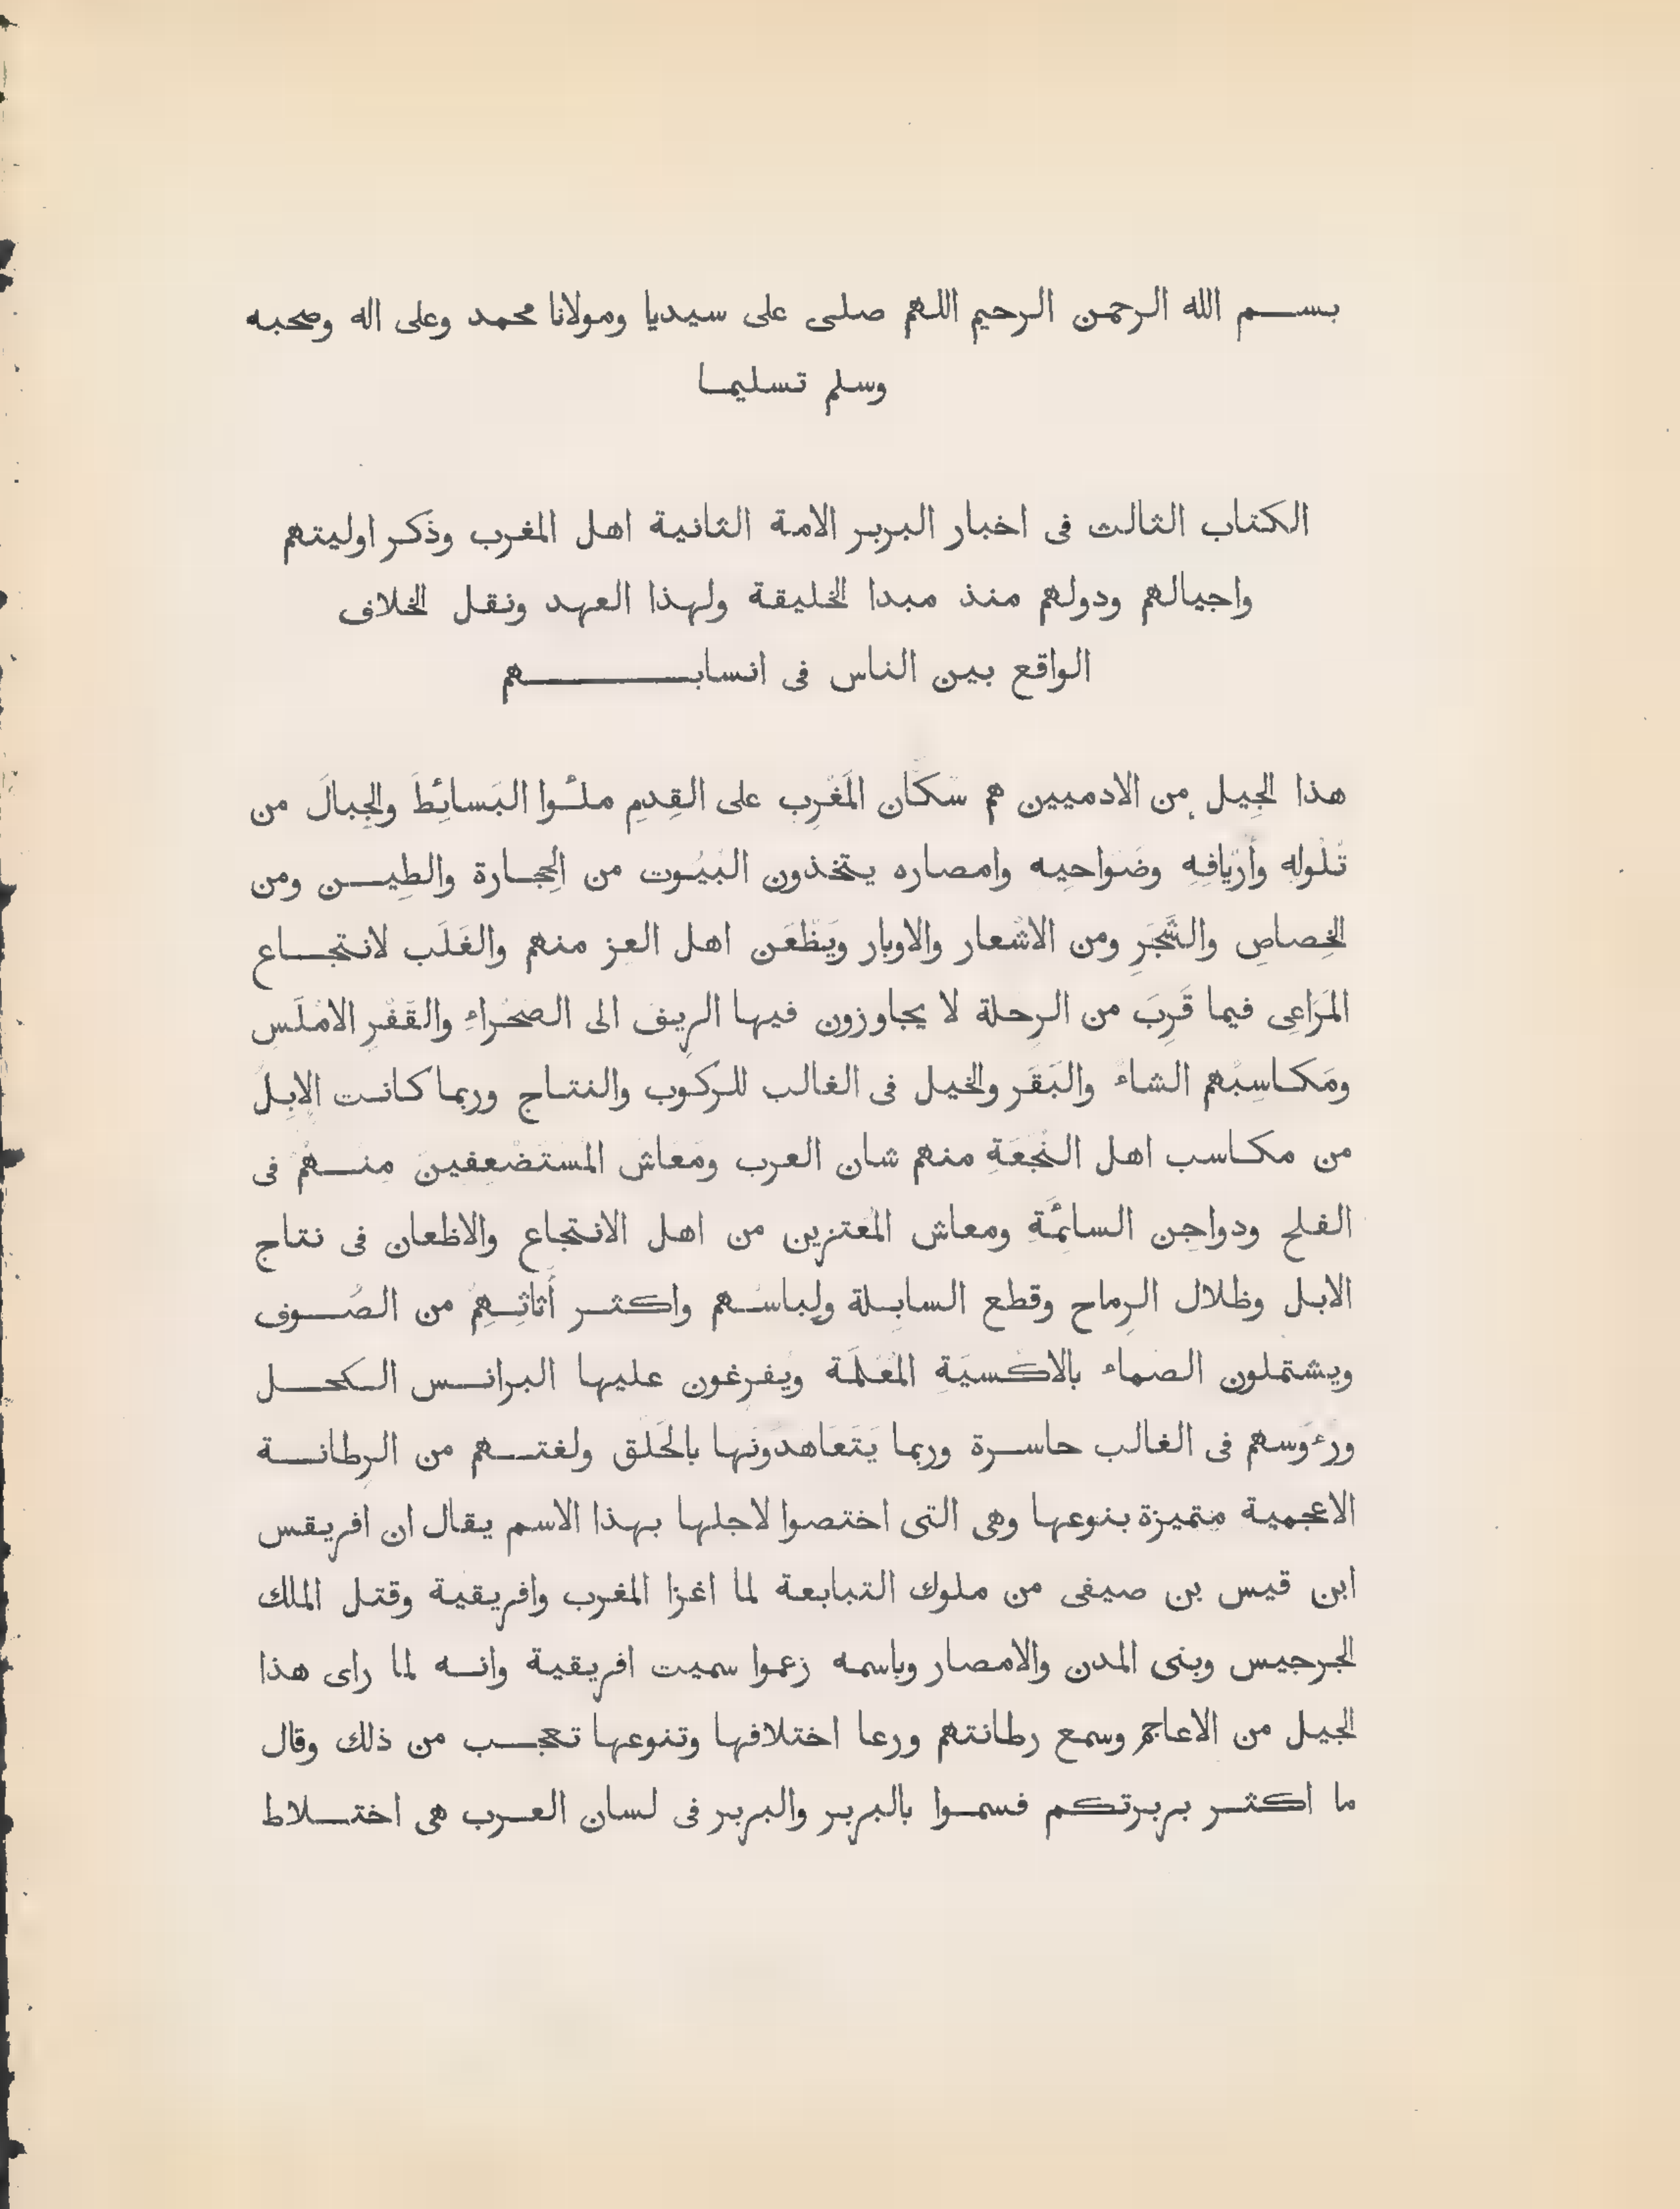 بسم الله الرحمن الرحيم اللهم صلى على سيديا ومولانا محمد وعلى اله وصحبه
وسلم تسليما
الكتاب الثالث فى اخبار البربر الامة الثانية اهل المغرب وذكر اوليتهم
واجيالهم ودولهم منذ مبدا الخليقة ولهذا العهد ونقل الخلاف
الواقع بين الناس فى انسابهم
هذا الجِيل من الادميين هم سكّان المَغْرِب على القِدمِ ملـُٔوا البَسائِطَ والجِبالَ من
تُلُولِه وأَرْيافِهِ وضَواحِيه وامصاره يتخذون البُيُوت من الحِجارة والطِين ومن
الخِصاصِ والشَّجَرِ ومن الاشْعار والاوبار ويَظْعَن اهل العز منهم والغَلَب لانتجاع
المَرَاعِى فيما قَرِبَ من الرِحلة لا يجاوزون فيها الرِيف الى الصَحْراءِ والقَفْرِ الامْلَسِ
ومَكاسِبُهم الشاءُ والبَقَر والخيل فى الغالب للركوب والنتاج وربما كانت الابِلُ
من مكاسب اهل النُجْعَةِ منهم شان العرب ومَعَاش المُسْتَضْعِفينَ مِنهمْ فى
الفلح ودواجِن السائِمَةِ ومعاش المُعتزين من اهل الانتجاع والاظعان فى نتاج
الابل وظلال الرِماح وقطع السابِلة ولِباسُهم واكثر أَثاثِهِمْ من الصُوف
ويشتملون الصَماء بالاكْسيَةِ المُعْلَمَة ويُفرِغون عليها البرانس الكحل
ورءوَسهم فى الغالب حاسرة وربما يَتَعَاهدُونَها بالحَلق ولغتهم من الرِطانة
الاعجمية متميزة بنوعها وهى التى اختصوا لاجلها بهذا الاسم يقال ان افريقس
ابن قيس بن صيفى من ملوك التبابعة لما اغزا المغرب وافريقية وقتل الملك
الجرجيس وبنى المدن والامصار وباسمه زعموا سميت افريقية وانه لما راى هذا
الجيل من الاعاجم وسمع رطانتهم ورعا اختلافها وتنوعها تعجب من ذلك وقال
ما اكثر بربرتكم فسموا بالبربر والبربر فى لسان العرب هى اختلاط